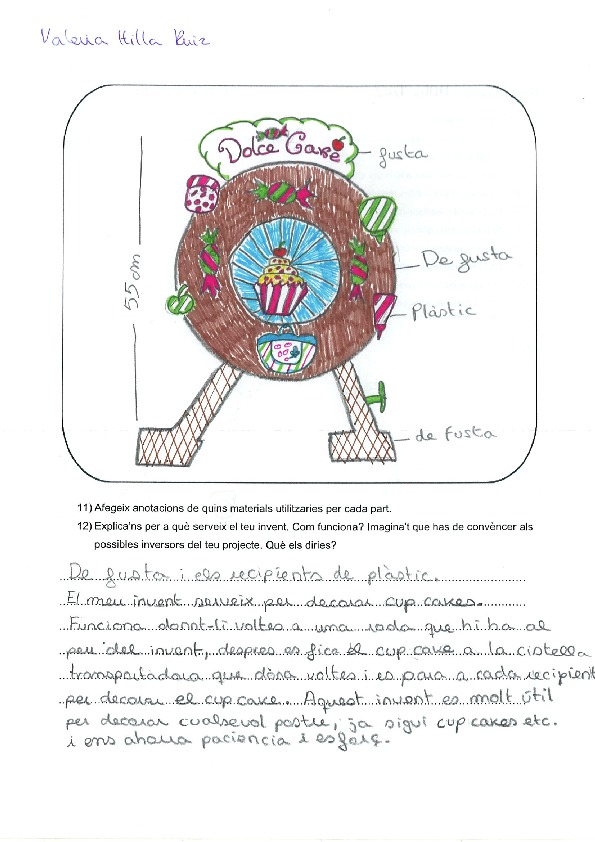 Valeria Hilla Ruiz
Dolce Cake
fusta
55 cm
De fusta
Plàstic
de fusta
11) Afegeix anotacions de quins materials utilitzaries per cada part.
12) Explica'ns per a què serveix el teu invent. Com funciona? Imagina't que has de convèncer als
possibles inversors del teu projecte. Què els diries?
De fusta i els recipients de plàstic.
El meu invent serveix per decorar cup cakes.
Funciona donnt-li voltes a una roda que hi ha al
peu del invent, despres es fica el cup cake a la cistella
transportadora que dóna voltes i es para a cada recipient
per decorar el cup cake. Aquest invent es molt útil
per decorar cualsevol postre, ja sigui cup cakes etc.
i ens ahorra paciencia i esforç.